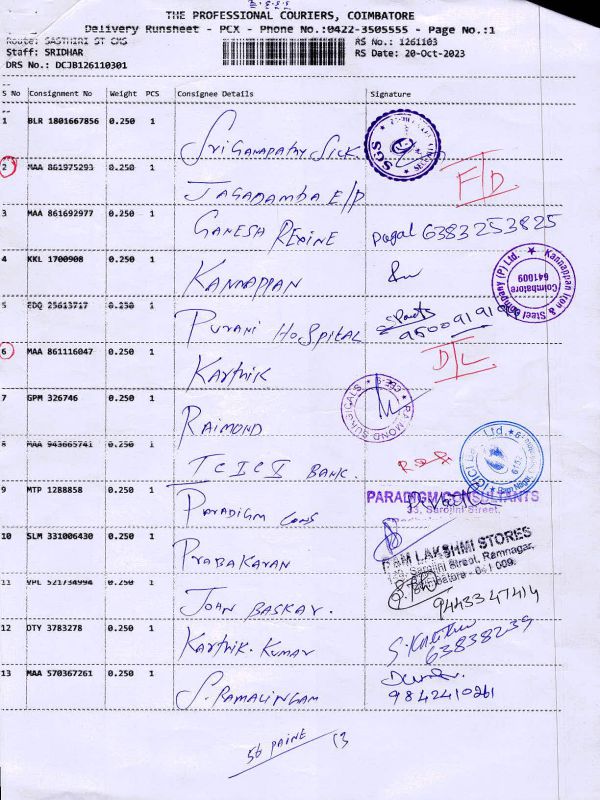 THE PROFESSIONAL COURIERS, COIMBATORE
Delivery Runsheet - PCX - Phone No.:0422-3505555 - Page No.:1
Route: SASTHIRI ST CMS
RS No.: 1261103
Staff: SRIDHAR
RS Date: 20-Oct-2023
DRS No.: DCJB126110301
S No Consignment No Weight PCS Consignee Details Signature
1 BLR 1801667856 0.250 1 Sri Ganapathy Silk
2 MAA 861975293 0.250 1 JAGADAMBA E/P F/D
3 MAA 861692977 0.250 1 GANESH REXINE Pagal 6383253825
4 KKL 1700908 0.250 1 KANNAPPAN
Kannappan Iron & Steel Company (P) Ltd.
Coimbatore
641009
5 EDQ 25613717 0.250 1 PURANI HOSPITAL
6 MAA 861116047 0.250 1 Karthik D/L
7 GPM 326746 0.250 1 RAIMOND
RAIMOND SURGICALS
8 MAA 943665741 0.250 1 ICICI BANK.
ICICI Ltd.
Ram Nagar
9 MTP 1288858 0.250 1 PARADIGM Cons
PARADIGM CONSULTANTS
33, Sarojini Street,
10 SLM 331006430 0.250 1 PRABAKARAN
RAM LAKSHMI STORES
Sarojini Street, Ramnagar,
Coimbatore - 641 009.
11 VPL 521734994 0.250 1 JOHN BASKAR.
9443347414
12 DTY 3783278 0.250 1 Karthik. Kumar
S. Karthik
63838239
13 MAA 570367261 0.250 1 S. RAMALINGAM
9842410261